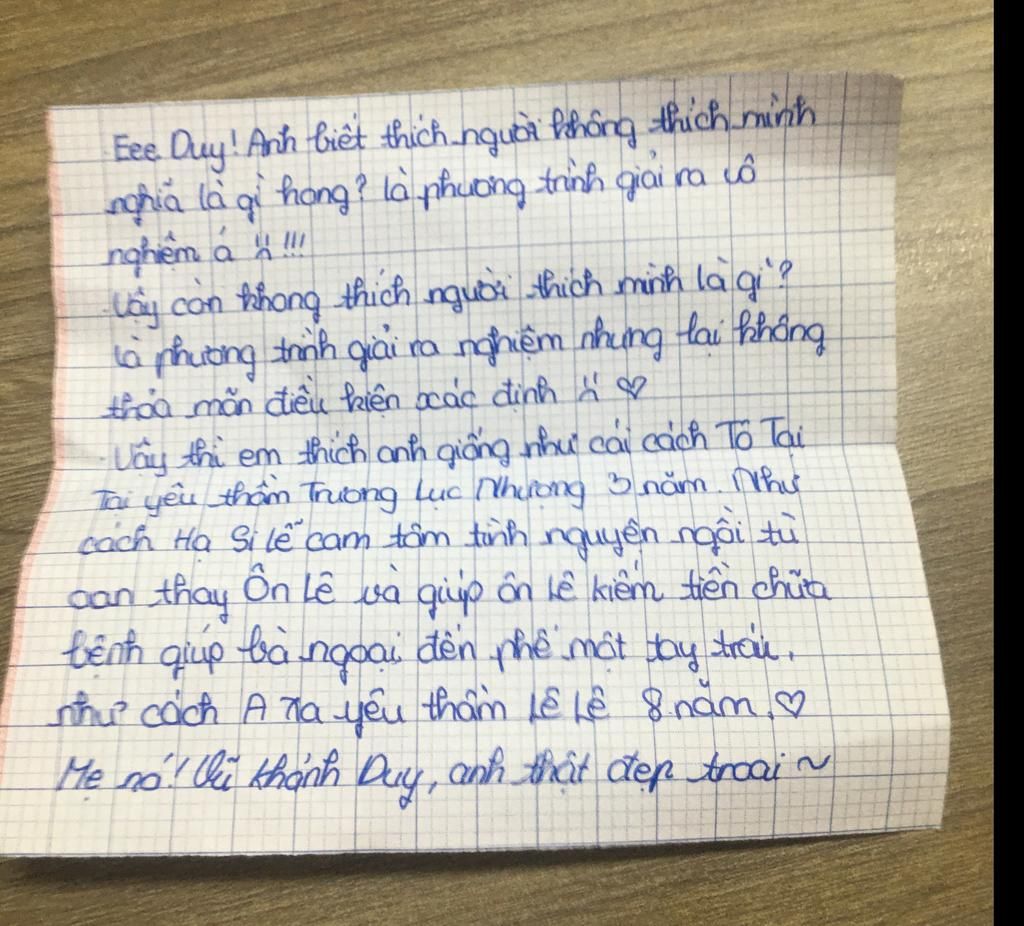 Eee Duy! Anh biết thích người không thích mình
nghĩa là gì hong? Là phương trình giải ra vô
nghiệm á !!!
Vậy còn không thích người thích mình là gì?
Là phương trình giải ra nghiệm nhưng lại không
thỏa mãn điều kiện xác định ♡
Vậy thì em thích anh giống như cái cách Tô Tại
Tại yêu thầm Trương Lục Nhượng 3 năm. Như
cách Hạ Si Lễ cam tâm tình nguyện ngồi tù
oan thay Ôn Lê và giúp ôn lê kiếm tiền chữa
bệnh giúp bà ngoại đến phế một tay trái,
như cách A Xa yêu thầm Lê Lê 8 năm. ♡
Mẹ nó! Vũ Khánh Duy, anh thật đẹp troai ~